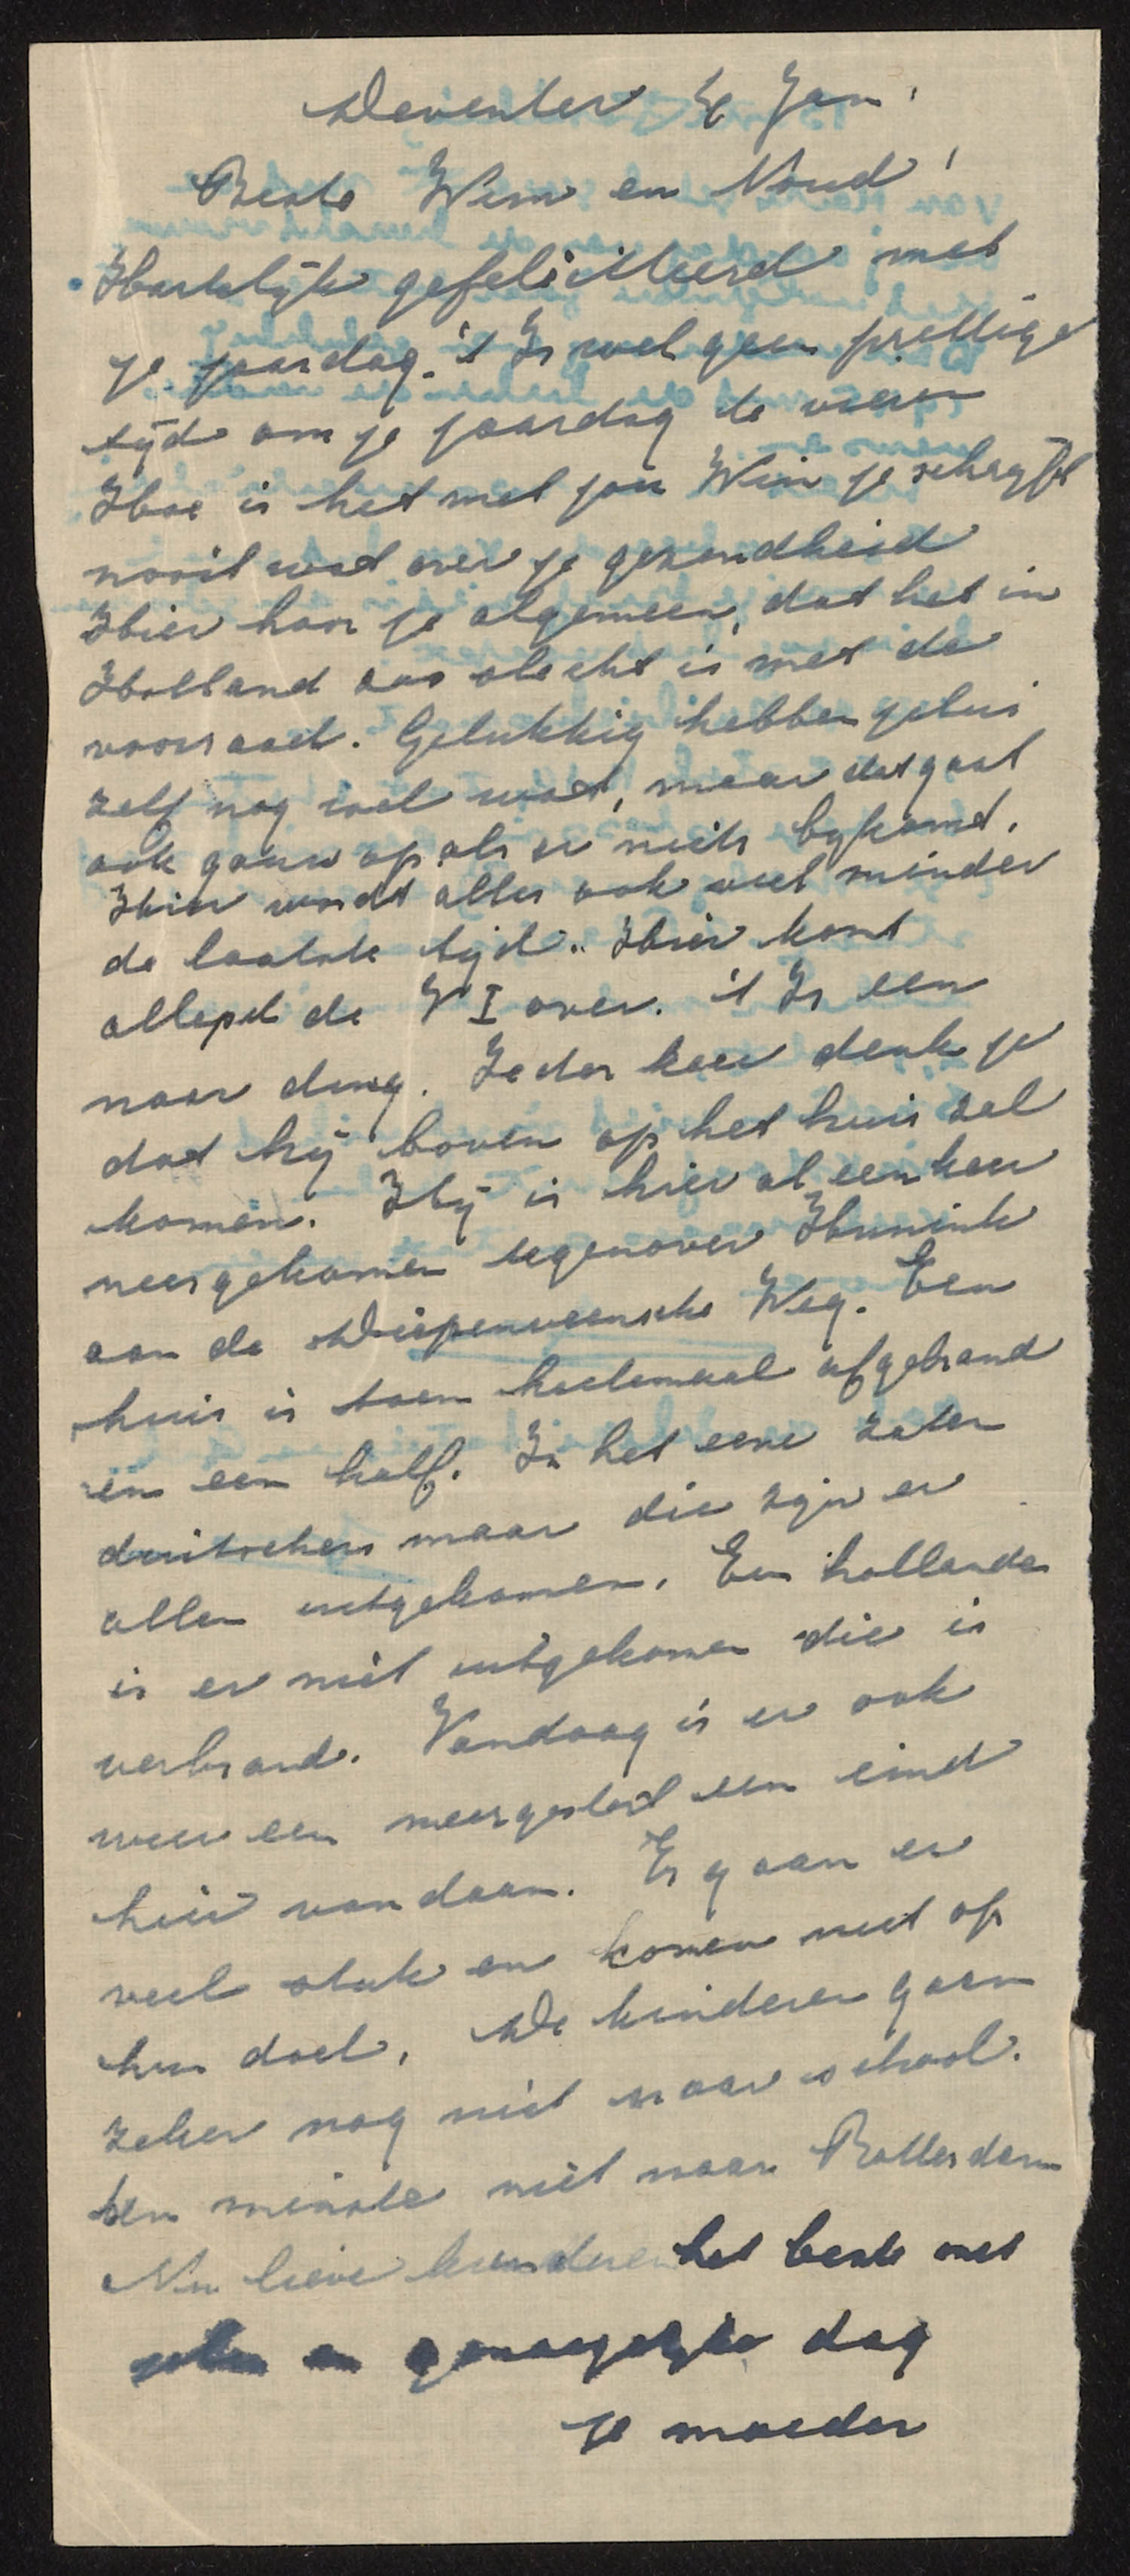 Deventer 4 Jan.
Beste Wim en Noud!
Hartelijk gefeliciteerd met
je jaardag. 't Is wel geen prettige
tijd om je jaardag te vieren
Hoe is het met jou Wim je schrijft
nooit wat over je gezondheid
Hier hoor je algemeen, dat het in
Holland zoo slecht is met de
voorraad. Gelukkig hebben jelui
zelf nog wel wat, maar dat gaat
ook gauw op als er niets bykomt.
Hier wordt alles ook veel minder
de laatste tijd.. Hier komt
altepet de V I over. 't Is een
naar ding. Ieder keer denk je
dat hij boven op het huis zal
komen. Hij is hier al een keer
neergekomen tegenover Hunink
aan de Diepenveensche Weg. Een
huis is toen heelemaal afgebrand
en een half. In het eene zaten
duitschers maar die zijn er
allen uitgekomen. Een hollander
is er niet uitgekomen die is
verbrand. Vandaag is er ook
weer een neergestort een eind
hier vandaan. Er gaan er
veel stuk en komen niet op
hun doel. De kinderen gaan
zeker nog niet naar school.
ten minste niet naar Rotterdam
Nu lieve kinderen het beste met
en genoegelyke dag
je moeder